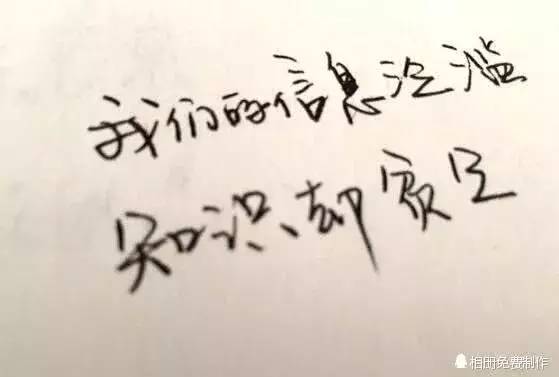 我们的信息泛滥
知识却贫乏
相册免费制作